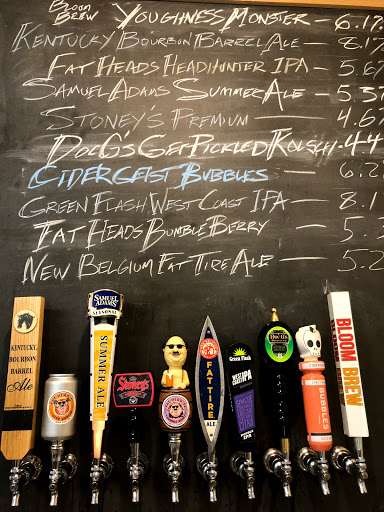 Bloom Brew Youghness Monster — 6.17
Kentucky Bourbon Barrel Ale — 8.19
Fat Heads Headhunter IPA — 5.67
Samuel Adams Summer Ale — 5.37
Stoney's Premium — 4.67
DocG's Get Pickled Kolsch — 44
Cidergeist Bubbles — 6.2
Green Flash West Coast IPA — 8.1
Fat Heads Bumble Berry — 5.
New Belgium Fat Tire Ale — 5.2
KENTUCKY BOURBON BARREL Ale
SAMUEL ADAMS
SEASONAL
SUMMER ALE
Stoney's
FAT TIRE
ALE
Green Flash
WEST COAST IPA
DocG's
BUBBLES
BLOOM BREW